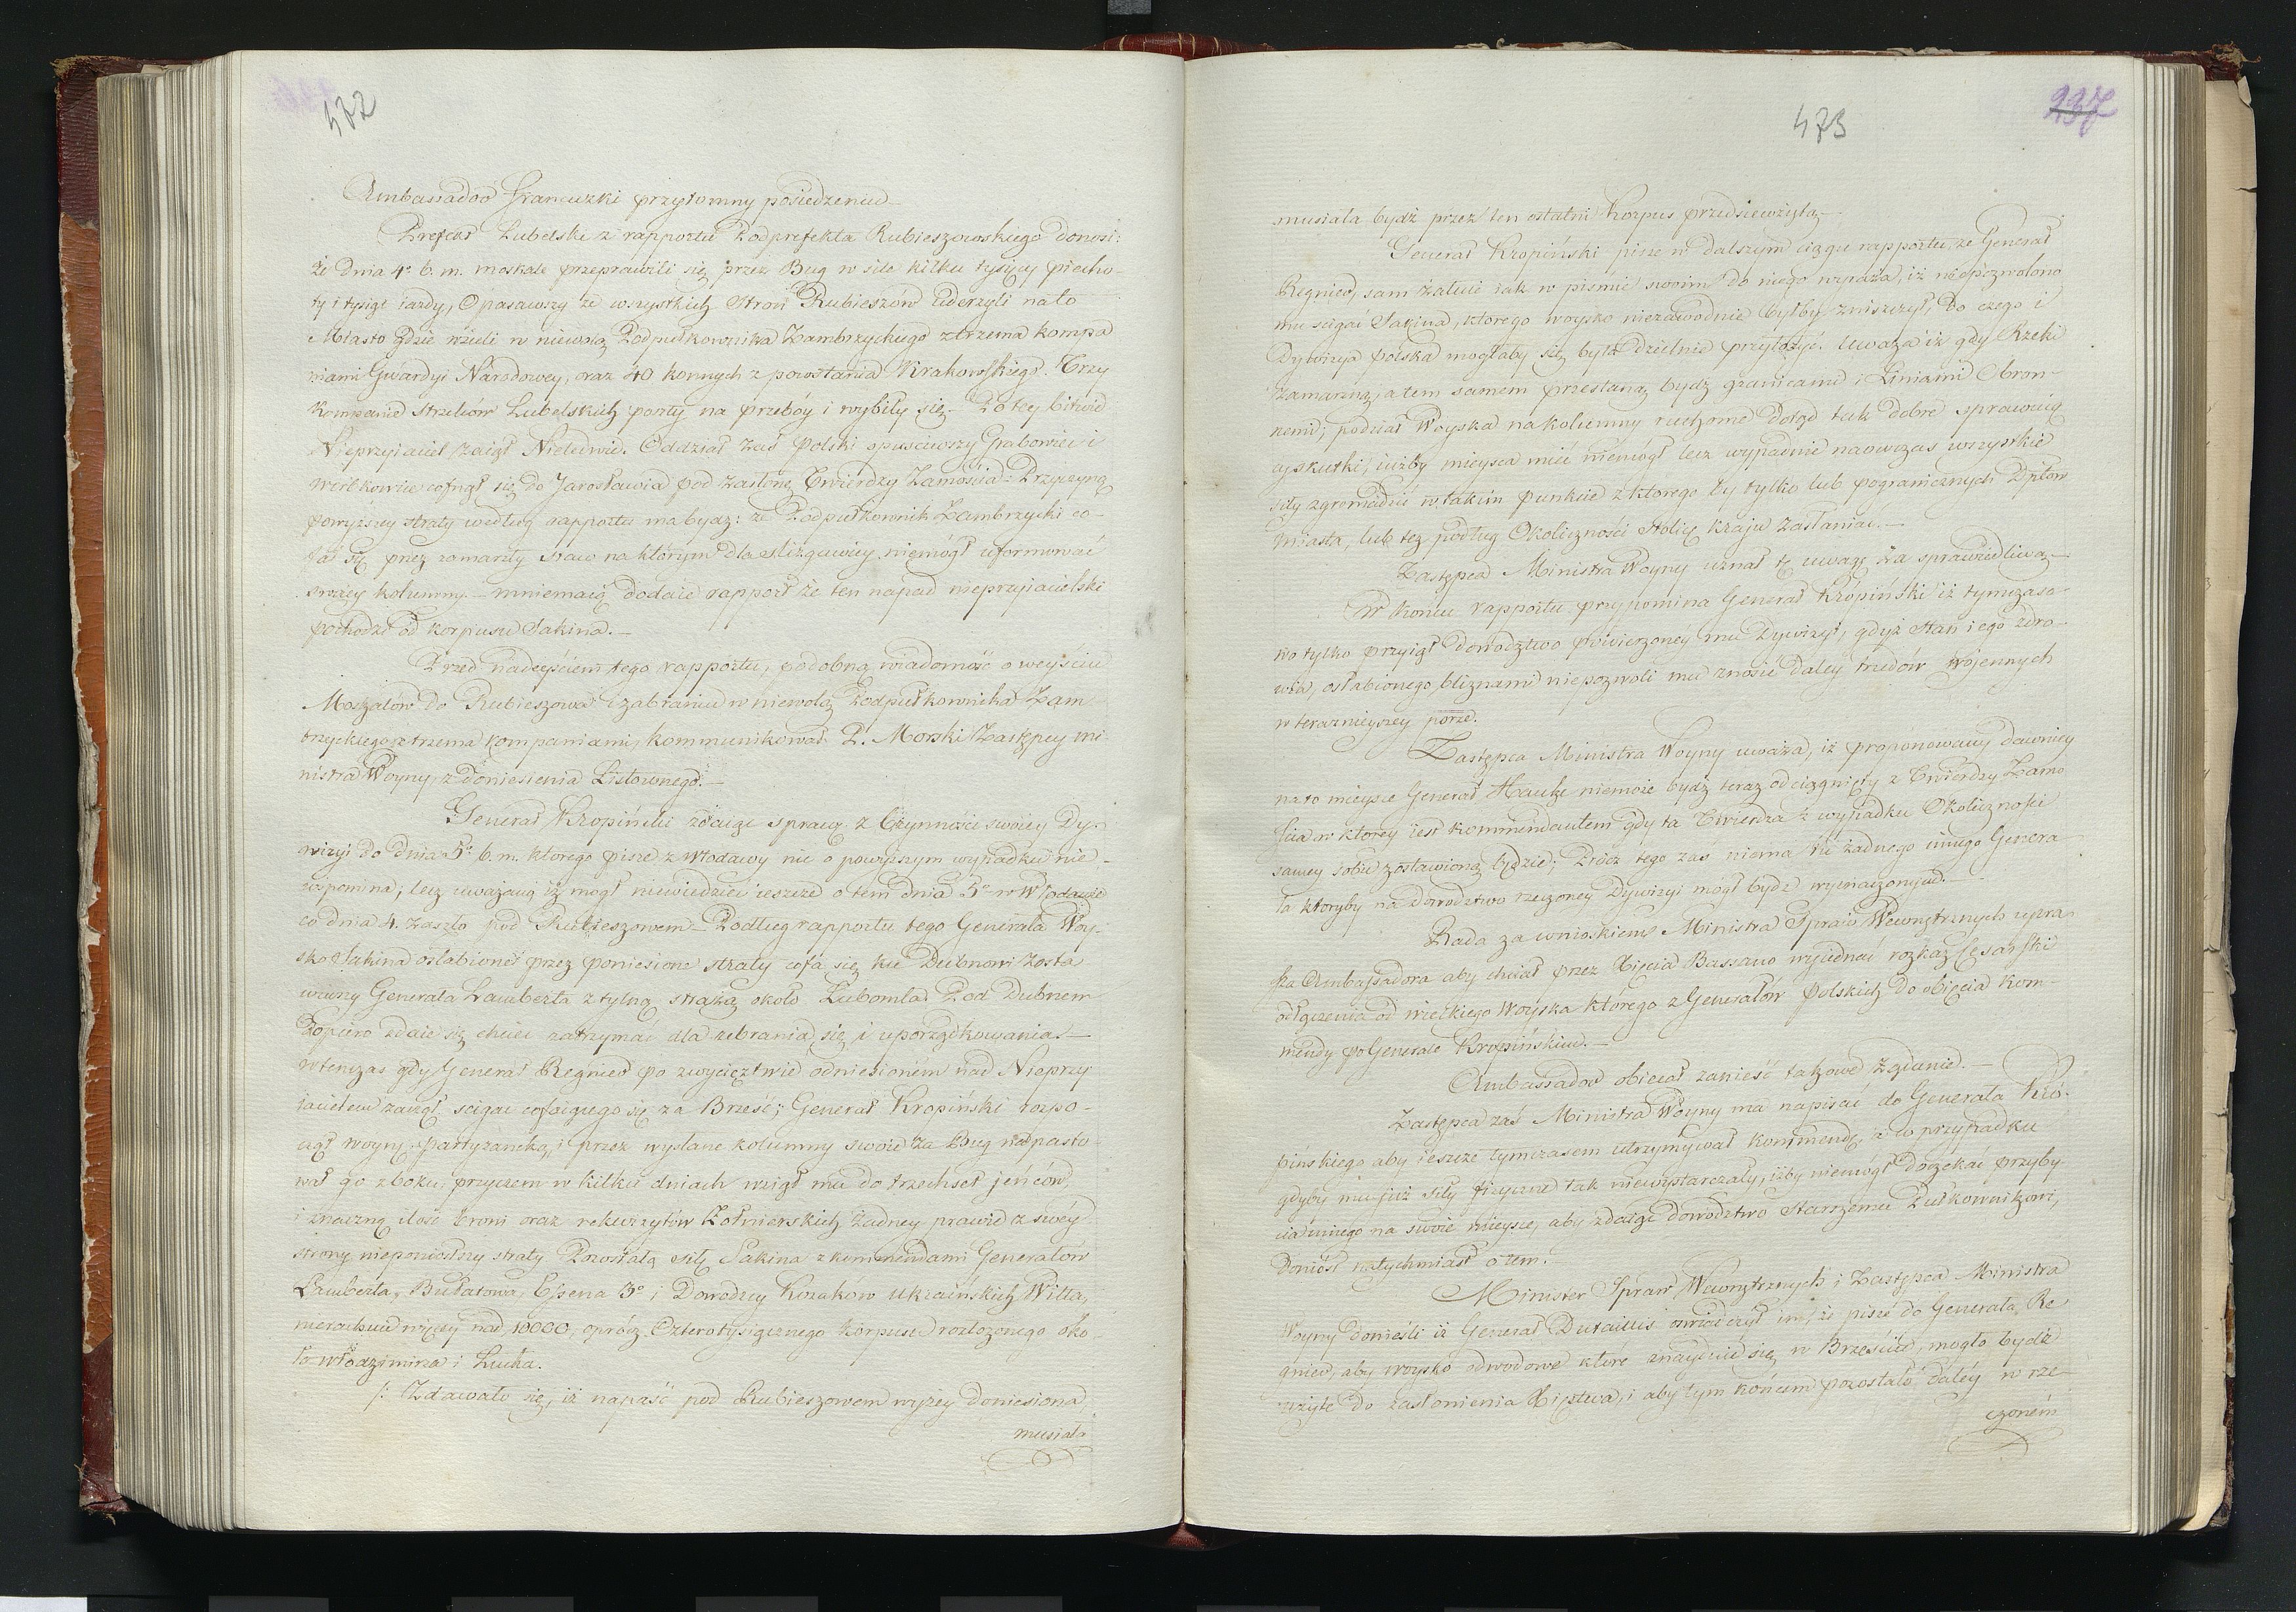 472
Ambassador Francuzki przytomny posiedzeniu.
Prefekt Lubelski z rapportu Podprefekta Rubieszowskiego donosi:
że dnia 4º b. m. moskale przeprawili się przez Bug w sile kilku tysięcy piecho-
ty i tysiąc iazdy, Opasawszy ze wszystkich Stron Rubieszów uderzyli na to
Miasto gdzie wzieli w niewolą Podpułkownika Zambrzyckiego z trzema kompa
niami Gwardyi Narodowey, oraz 40 konnych z powstania Krakowskiego. Trzy
Kompanie Strzelców Lubelskich poszły na przebóy i wybiły się. Po tey bitwie
Nieprzyiaciel zaiął Nieledwie. Oddział zaś Polski opuściwszy Grabowiec i
Woślkowice cofnął się do Jarosławia pod zasłonę Twierdzy Zamościa: Przyczyną
powyższey straty według rapportu ma bydz: że Podpułkownik Zambrzycki co-
fał się przez zamarzły Staw na którym dla ślizgawicy niemógł uformować
swoiéy kolumny. – mniemaią dodaie rapport że ten napad nieprzyiacielski
pochodzi od korpusu Sakina. –
Przed nadeyściem tego rapportu, podobną wiadomość o weyściu
Moskalów do Rubieszowa i zabraniu w niewolą Podpułkownika Zam
brzyckiego z trzema kompaniami, kommunikował P. Morski Zastępcy Mi-
nistra Woyny, z doniesienia Listownego. –
Generał Kropiński zdaiąc sprawę z Czynności swoiey Dy-
wizyi do dnia 5º b. m. którego pisze z Włodawy nic o powyższym wypadku nie-
wspomina; lecz uważaiąc iż mógł niewiedzieć ieszcze o tem dnia 5º w Włodawie
co dnia 4. zaszło pod Rubieszowem – Podług rapportu tego Generała Woy-
sko Sakina osłabione przez poniesione straty cofa się ku Dubnowi zosta
wiwszy Generała Lamberta z tylną strażą około Lubomla Pod Dubnem
Dopiero zdaie się chcieć zatrzymać dla zebrania się i uporządkowania –
Wtenczas gdy Generał Regnier po zwycięztwie odniesioném nad Nieprzy
iacielem zaczął scigać cofaiącego się za Brześć; Generał Kropiński rozpo-
czął woynę partyzancką, i przez wysłane kolumny swoie za Bug napasto-
wał go z boku, przyczem w kilku dniach wziął mu do trzechset jeńców,
i znaczną ilość broni oraz rekwizytów Żołnierskich żadney prawie z swéy
strony nieponiosłszy straty Pozostałą siłę Sakina z kommendami Generałów
Lamberta, Bułatowa, Essena 3º i Dowodzcy Kozaków Ukraińskich Witta,
nierachuie więcey nad 10000, oprócz Czterotysięcznego korpusu rozłożonego oko-
ło Włodzimirza i Łucka.
/: Zdawało się, iż napaść pod Rubieszowem wyżey doniesiona,
musiała
473
237
musiała bydź przez ten ostatni Korpus przedsięwziętą –
Generał Kropiński pisze w dalszym ciągu rapportu, że Generał
Regnier, sam żałuie iak w piśmie swoim do niego wyraża, iż niepozwolono
mu scigać Sakina, którego woysko niezawodnie byłby zniszczył, do czego i
Dywizya polska mogłaby się była dzielnie przyłożyć. Uważa iż gdy Rzeki
zamarzną, a tem samem przestaną bydz granicami i Liniami Obron-
nemi; podział Woyska na kolumny ruchome dotąd tak dobre sprawuią
cy skutki, iużby mieysca mieć niemógł lecz wypadnie naowczas wszystkie
siły zgromadzić w takim punkcie z którego by tylko lub pogranicznych Dpttów
miasta, lub też podług Okoliczności Stolicę kraju zasłaniać. –
Zastępca Ministra Woyny uznał tę uwagę za sprawiedliwą –
W końcu rapportu przypomina Generał Kropiński iż tymczaso-
wo tylko przyiął dowodztwo powierzoney mu Dywizyi, gdyż Stan iego zdro-
wia, osłabionego bliznami niepozwoli mu znosić daley trudów wojennych
w teraznieyszey porze.
Zastępca Ministra Woyny uważa, iż proponowany dawniey
na to mieysce Generał Hauke niemoże bydź teraz odciągnięty z Twierdzy Zamo
ścia w którey iest kommendantem gdy ta Twierdza z wypadku Okoliczności
samey sobie zostawioną będzie; Prócz tego zaś niema tu żadnego innego Genera
ła któryby na dowodztwo rzeczoney Dywizyi mógł bydz wyznaczonym. –
Rada za wnioskiem Ministra Spraw Wewnętrznych upra
sza Ambassadora aby chciał przez Xięcia Bassano wyiednać rozkaz Cesarski
odłączenia od wielkiego Woyska którego z Generałów Polskich do obięcia Kom-
mendy po Generale Kropińskim. –
Ambassador obiecał zanieść takowe żądanie. –
Zastępca zaś Ministra Woyny ma napisać do Generała Kro-
pińskiego aby ieszcze tymczasem utrzymywał kommendę, a w przypadku
gdyby mu już siły fizyczne tak niewystarczały, iżby niemógł doczekać przyby
cia innego na swoie mieysce, aby zdaiąc dowodztwo Starszemu Pułkownikowi,
doniósł natychmiast o tem. –
Minister Spraw Wewnętrznych i Zastępca Ministra
Woyny donieśli iż Generał Dutaillis oświadczył im, że pisze do Generała Re
gnier, aby woysko odwodowe które znayduie się w Brześciu, mogło bydź
użyte do zasłonienia Xięstwa, i aby tym końcem pozostało daléy w rze-
czoném